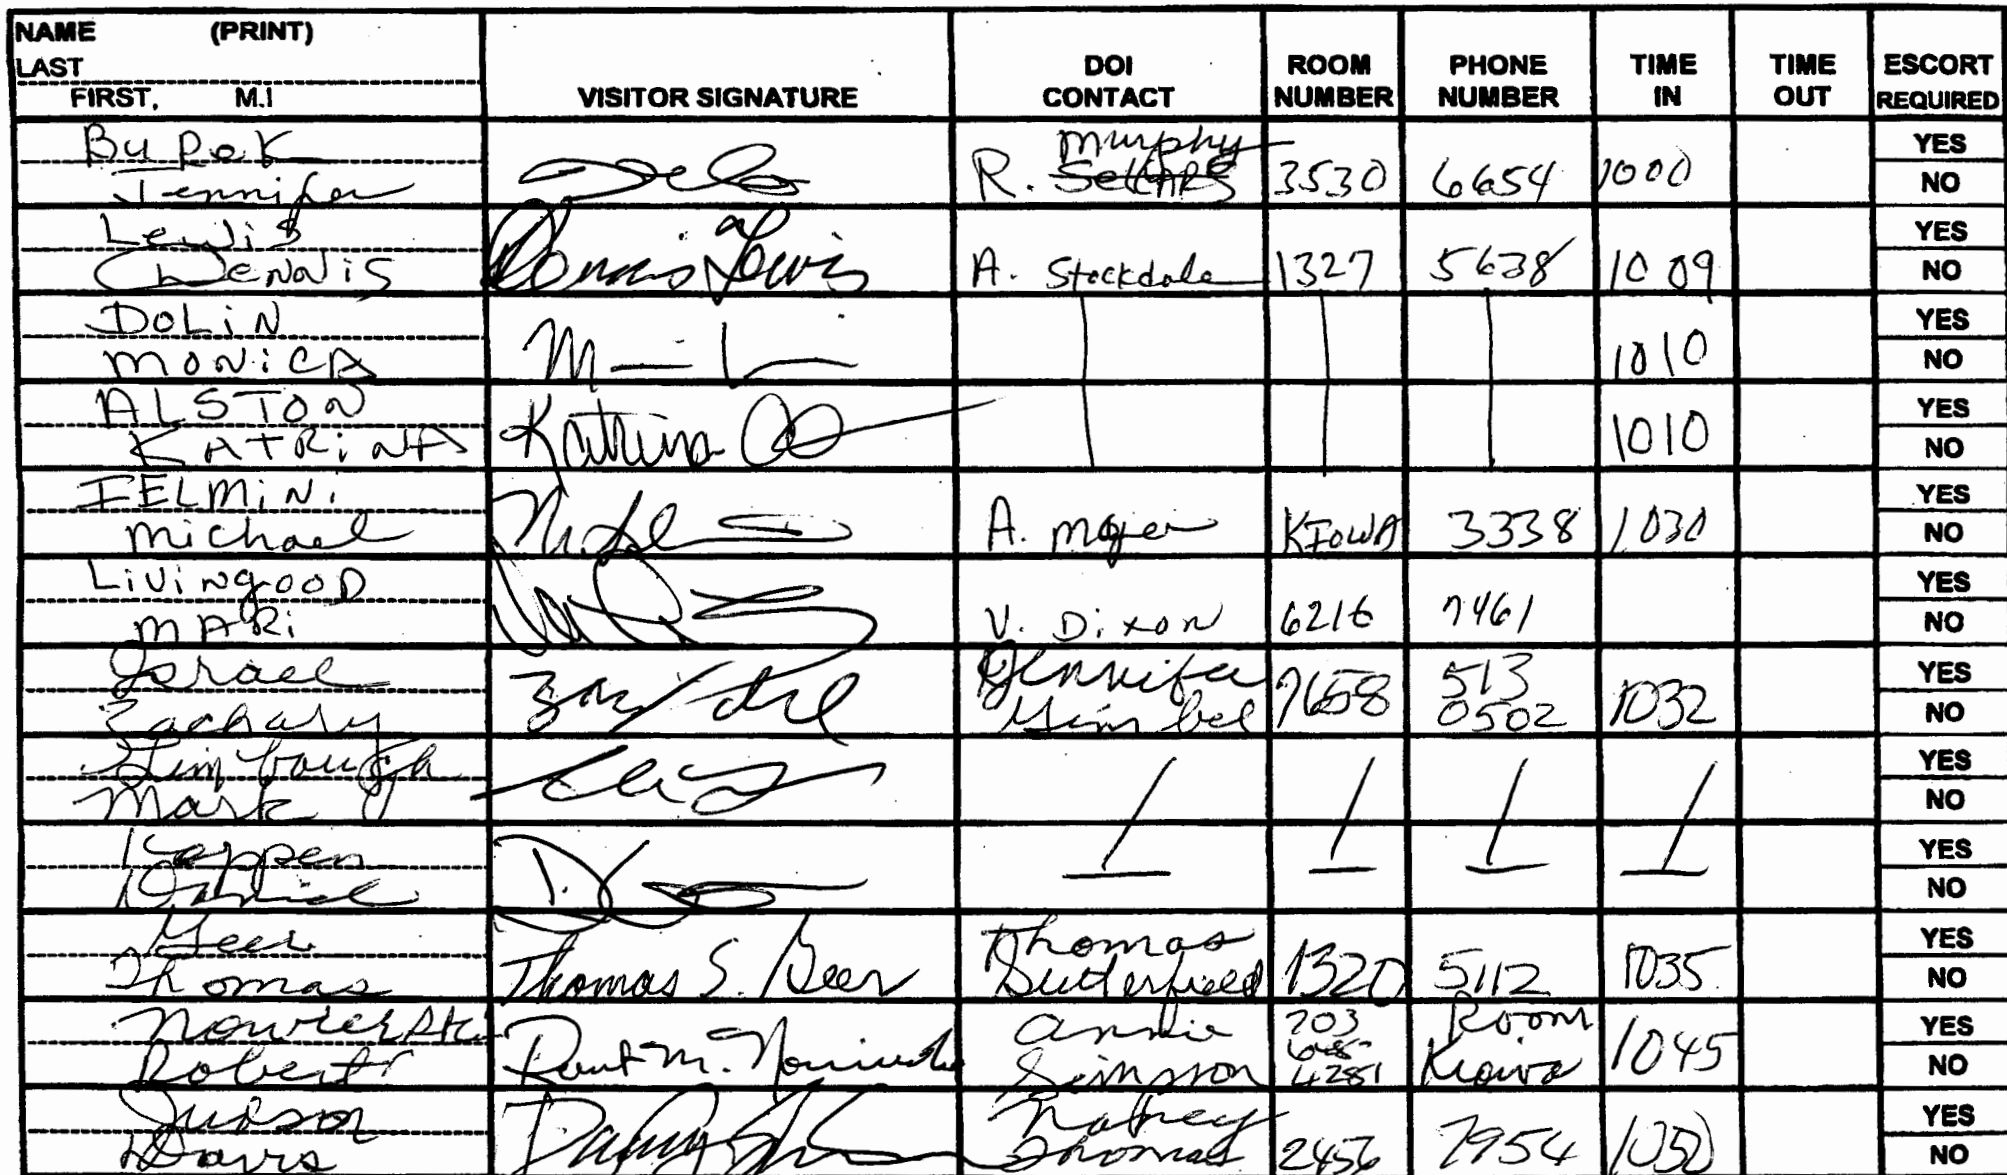 NAME (PRINT)
LAST
FIRST, M.I
VISITOR SIGNATURE
DOI CONTACT
ROOM NUMBER
PHONE NUMBER
TIME IN
TIME OUT
ESCORT REQUIRED
Burek
Jennifer
R. Murphy 3530 6654 1000
YES
NO
Lewis
Dennis
Dennis Lewis A. Stockdale 1327 5638 1009
YES
NO
DOLiN
MONiCA
1010
YES
NO
ALSTON
KATRiNA
Katrina 1010
YES
NO
IELMiNi
Michael
A. KIOWA 3338 1030
YES
NO
LiViNgOOD
MARi
V. Dixon 6216 7461
YES
NO
Israel
Zachary
Jennifer Gimbel 7658 513 0502 1032
YES
NO
Limbaugh
Mark
YES
NO
Keppen
Daniel
YES
NO
Geer
Thomas
Thomas S. Geer Thomas 1320 5112 1035
YES
NO
Robert
Annie Simpson 703 4281 Room Kiowa 1045
YES
NO
Judson
Davis
Thomas 2456 7954 1050
YES
NO